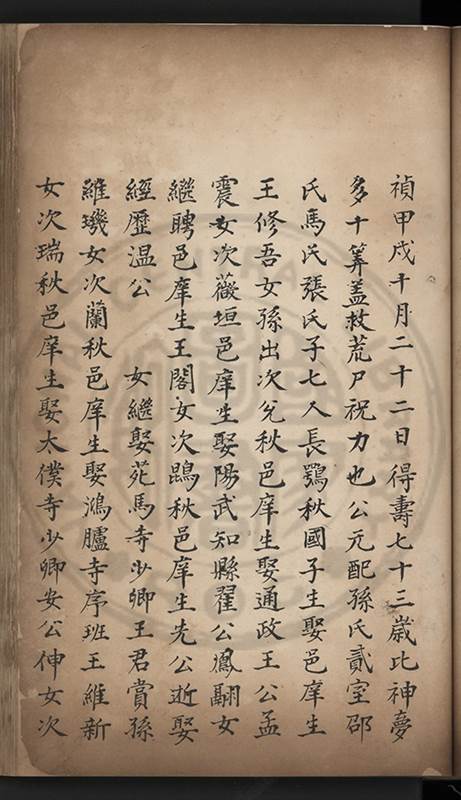 禎甲戌十月二十二日得壽七十三歲比神夢
多十筭盖救荒尸祝力也公元配孫氏貳室邵
氏馬氏張氏子七人長鶚秋國子生娶邑庠生
王修吾女孫出次兊秋邑庠生娶通政王公孟
震女次薇垣邑庠生娶陽武知縣翟公鳳翮女
繼聘邑庠生王閣女次鵾秋邑庠生先公逝娶
經歷温公 女繼娶苑馬寺少卿王君賞孫
維璣女次蘭秋邑庠生娶鴻臚寺序班王維新
女次瑞秋邑庠生娶太僕寺少卿安公伸女次